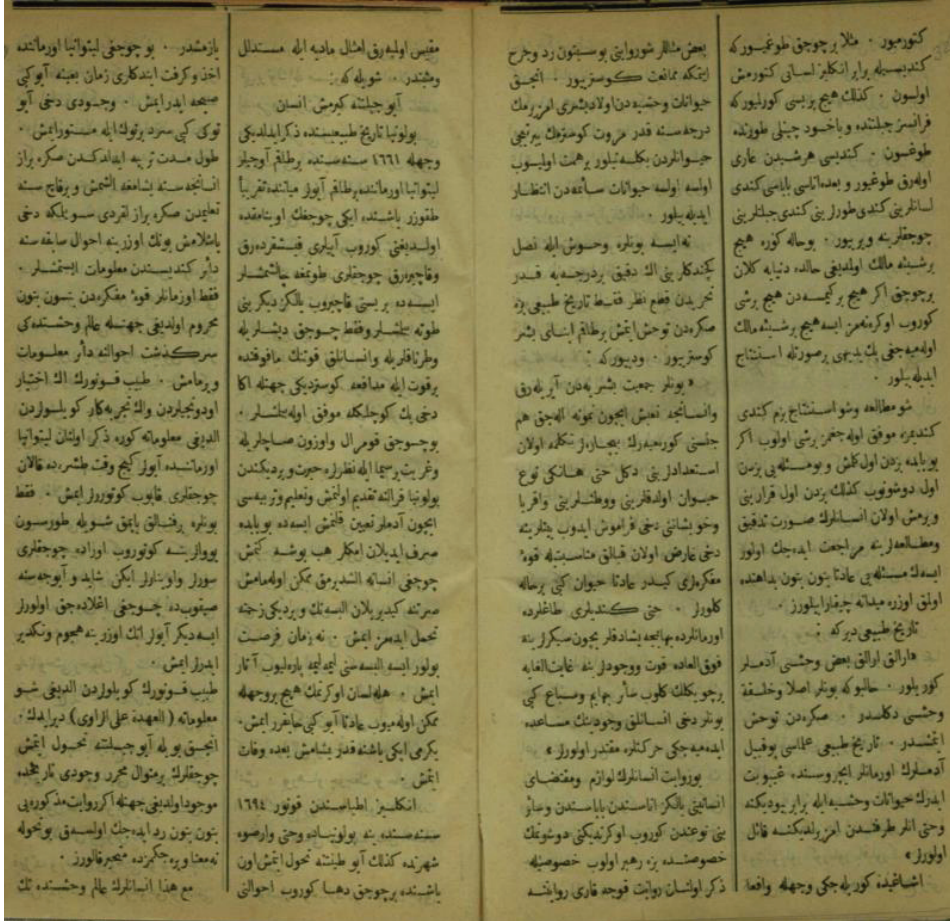 كتورميور . مثلا بر چوجق طوغميوركه
كنديسيله برابر انكليز لسانى كتورمش
اولسون . كذلك هيچ بريسى كورلميوركه
فرانسز جبلتنده وياخود چينلى طورنده
طوغسون . كنديسى هرشيدن عارى
اوله‌رق طوغيور و بعده اناسى باباسى كندى
لسانلرينى كندى طورلرينى كندى جبلتلرينى
چوجقلرينه ويريور . بوحاله كوره هيچ
برشيئه مالك اولمديغى حالده دنيايه كلان
برچوجق اكر هيچ بركيمسه‌دن هيچ برشى
كوروب اوكرنه‌مز ايسه هيچ برشيئه مالك
اوله‌ميه‌جغى پك بديهى برصورتله استنتاج
ايديله‌بيلور .
شو مطالعه وشو استنتاج بزم كندى
كنديمزه موفق اوله‌جغمز برشى اولوب اكر
بو بابده بزدن اول كلمش وبومسئله‌يى بزدن
اول دوشونوب كذلك بزدن اول قرارينى
ويرمش اولان انسانلرك صورت تدقيق
ومطالعه‌لرينه مراجعت ايده‌جك اولور
ايسه‌ك مسئله‌يى عادتا بتون بتون بداهتده
اولق اوزره ميدانه چيقارا بيلورز .
تاريخ طبيعى ديركه :
« ارالق ارالق بعض وحشى آدملر
كوريلور . حالبوكه بونلر اصلا وخلقة
وحشى دكلدر . صكره‌دن توحش
ايتمشدر . تاريخ طبيعى علماسى بوقبيل
آدملرك اورمانلر ايچروسنده غيبوبت
ايدرك حيوانات وحشيه ايله برابر بيوديكنه
وحتى انلر طرفندن امزيرلديكنه قائل
اولورلر »
اشاغيده كوريله‌جكى وجهله واقعا
بعض مثاللر شو روايتى بوسبتون رد وجرح
ايتمكه ممانعت كوستريور . انجق
حيوانات وحشيه‌دن اولاد بشرى امزيرمك
درجه‌سنه قدر مروت كوسترمك ييرتيجى
حيوانلردن بكلنه‌بيلور برهمت اوليوب
اولسه اولسه حيوانات سائمه‌دن انتظار
ايديله‌بيلور .
نه ايسه بونلره وحوش ايله نصل
كچندكلرينى اك دقيق بردرجه‌يه قدر
تحريدن قطع نظر فقط تاريخ طبيعى بزه
صكره‌دن توحش ايتمش برطاقم ابناى بشر
كوستريور . وديوركه :
« بونلر جمعيت بشريه‌دن آيريله‌رق
وانسانجه تعيش ايچون نمونه اله‌جق هم
جنسى كورميه‌رك بيچاره‌لر تكلمه اولان
استعدادلرينى دكل حتى هانكى نوع
حيوان اولدقلرينى ووطنلرينى واقربا
وخويشاننى دخى فراموش ايدوب بيتلرينه
دخى عارض اولان قبالق مناسبتيله قوهٔ
مفكره‌لرى كيدر عادتا حيوان كبى برحاله
كلورلر . حتى كنديلرى طاغلرده
اورمانلرده بهايمجه يشادقلرى ايچون سيكرلرينه
فوق العاده قوت ووجودلرينه غايت الغايه
برچويكلك كلوب سائر بهايم وسباع كبى
بونلر دخى انسانلق وجودينك مساعده
ايده‌ميه‌جكى حركتلره مقتدر اولورلر »
بو روايت انسانلرك لوازم ومقتضاى
انسانيتى يالكز اناسندن باباسندن وسائر
بنى نوعندن كوروب اوكرنديكنى دوشونمك
خصوصنده بزه رهبر اولوب خصوصيله
ذكر اولنان روايت قوجه قارى روايتنه
مقيس اوليه‌رق امثال ماديه ايله مستدلل
ومثبتدر . شويله كه :
آيو جبلتنه كيرمش انسان
بولونيا تاريخ طبيعيسنده ذكر ايدلديكى
وجهله ١٦٦١ سنه‌سنده برطاقم آوجيلر
ليتوانيا اورماننده برطاقم آيولر مياننده تقريبا
طقوزر ياشنده ايكى چوجغك اوينامقده
اولديغنى كوروب آييلرى قيشقرده‌رق
وقاچيره‌رق چوجقلرى طوتمغه چالشمشلر
ايسه‌ده بريسنى قاچيروب يالكز ديكرينى
طوته بيلمشلر وفقط چوجق ديشلريله
وطرناقلريله وانسانلق قوتنك مافوقنده
برقوت ايله مدافعه كوسترديكى جهتله اكا
دخى پك كوجلكله موفق اوله‌بيلمشلر .
بوچوجق قومرال واوزون صاچلريله
وغريب بر سيما ايله نظرلره حيرت ويرديكندن
بولونيا قرالنه تقديم اولنمش وتعليم وتربيه‌سى
ايچون آدملر تعيين قلنمش ايسه‌ده بو بابده
صرف ايديلان امكلر هب بوشه كتمش
چوجغى انسانه الشديرمق ممكن اوله‌مامش
صرتنه كيديريلان البسه‌نك ويرديكى زحمته
تحمل ايده‌مز ايمش . نه زمان فرصت
بولور ايسه البسه‌سنى ليمه ليمه پاره‌ليوب آتار
ايمش . هله لسان اوكرتمك هيچ بروجهله
ممكن اوله‌ميوب عادتا آيو كبى حايقيرر ايمش .
يكرمى ايكى ياشنه قدر يشامش بعده وفات
ايتمش .
انكليز اطباسندن قونور ١٦٩٤
سنه‌سنده ينه بولونياده وحتى وارضوه
شهرنده كذلك آيو طينتنه تحول ايتمش اون
ياشنده برچوجق دها كوروب احوالنى
يازمشدر . بو چوجغى ليتوانيا اورماننده
اخذ وكرفت ايتدكلرى زمان بعينه آيو كبى
صيحه ايدر ايمش . وجودى دخى آيو
توكى كبى سرد بر توك ايله مستور ايمش .
طول مدت تربيه ايدلدكدن صكره براز
انسانجه‌سنه يشامغه الشمش و برقاچ سنه
تعليمدن صكره براز لقردى سويلمكه دخى
باشلامش بونك اوزرينه احوال سابقه‌سنه
دائر كنديسندن معلومات ايستمشلر .
فقط اوزمانلر قوهٔ مفكره‌دن بتون بتون
محروم اولديغى جهتله عالم وحشتده‌كى
سركذشت احوالنه دائر معلومات
ويرمامش . طبيب قونورك اك اختيار
اودونجيلردن واك تجربه‌كار كويلولردن
الديغى معلوماته كوره ذكر اولنان ليتوانيا
اورماننده آيولر كيج وقت طشره‌ده قالان
چوجقلرى قاپوب كوتوررلر ايمش . فقط
بونلره برفنالق ياپمق شويله طورسون
يووالرينه كوتوروب اوراده چوجقلرى
سورلر واوينارلر ايكن شايد و آيوجه‌سنه
صيقوبده چوجغى اغلاده‌جق اولورلر
ايسه ديكر آيولر انك اوزرينه هجوم وتكدير
ايدرلر ايمش .
طبيب قونورك كويلولردن الديغى شو
معلوماته ( العهدة على الراوى ) ديرايدك .
انجق بويله آيو جبلتنه تحول ايتمش
چوجقلرك برمنوال محرر وجودى تاريخجه‌ده
موجود اولديغى جهتله اكر روايت مذكوره‌يى
بتون بتون رد ايده‌جك اولسه‌ق بو تحوله
نه معنا ويره‌جكمزده متحير قالورز .
مع هذا انسانلرك عالم وحشتده تك